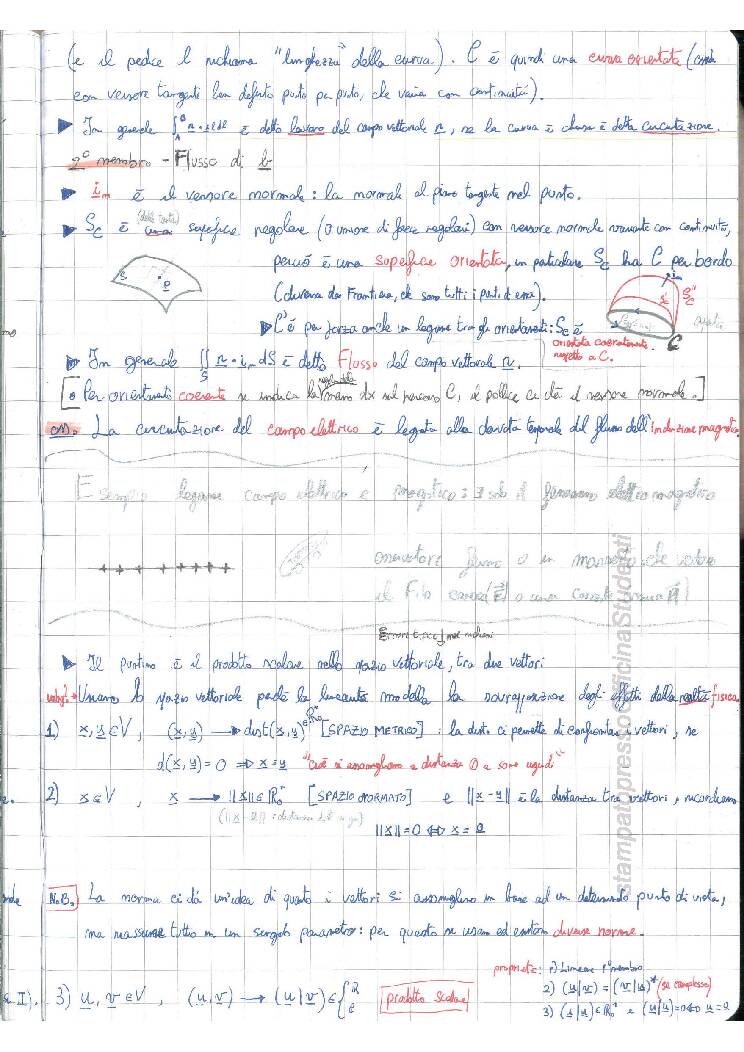 (e il pedice l richiama "lunghezza" della curva). C è quindi una curva orientata (cioè
con versore tangente ben definito punto per punto, che varia con continuità).
In generale ∫_A^B v · i_t dl è detto lavoro del campo vettoriale v, se la curva è chiusa è detta circuitazione.
2° membro - Flusso di b
i_n è il versore normale: la normale al piano tangente nel punto.
S_C è una superfice regolare (o unione di facce regolari) con versore normale variante con continuità,
perciò è una superfice orientata, in particolare S_C ha C per bordo
(diversa da Frontiera, che sono tutti i punti di essa).
C'è per forza anche un legame tra gli orientamenti: S_C è
orientata coerentemente
rispetto a C.
In generale ∬_S v · i_n dS è detto Flusso del campo vettoriale v.
Per orientamenti coerente se indica la mano dx sul percorso C, il pollice ci dà il versore normale.
La circuitazione del campo elettrico è legata alla derivata temporale del flusso dell'induzione magnetica
Esempio legame campo elettrico e magnetico: ∃ solo il fenomeno elettromagnetico
osservatore fermo o in movimento che vedono
il Filo carico (E) o una corrente
Il puntino è il prodotto scalare nello spazio vettoriale, tra due vettori
Usiamo lo spazio vettoriale perché la linearità modella la sovrapposizione degli effetti della realtà fisica.
1) x, y ∈ V, (x, y) → dist(x, y) ∈ R₀⁺ [SPAZIO METRICO]: la dist. ci permette di confrontare i vettori, se
d(x, y) = 0 ⇒ x = y "cioè si assomigliano a distanza 0 e sono uguali"
2) x ∈ V, x → ||x|| ∈ R₀⁺ [SPAZIO NORMATO] e ||x - y|| è la distanza tra vettori, ricordiamo
||x|| = 0 ⇔ x = 0
N.B. La norma ci dà un'idea di quanto i vettori si assomigliano in base ad un determinato punto di vista,
ma riassume tutto in un singolo parametro: per questo se usano ed esistono diverse norme.
proprietà: 1) Lineare 1° membro
3) u, v ∈ V, (u, v) → (u|v) ∈ { R C prodotto scalare
2) (u|v) = (v|u)* (se complesso)
3) (u|u) ∈ R₀⁺ e (u|u) = 0 ⇔ u = 0
stampatopressoOfficinaStudenti